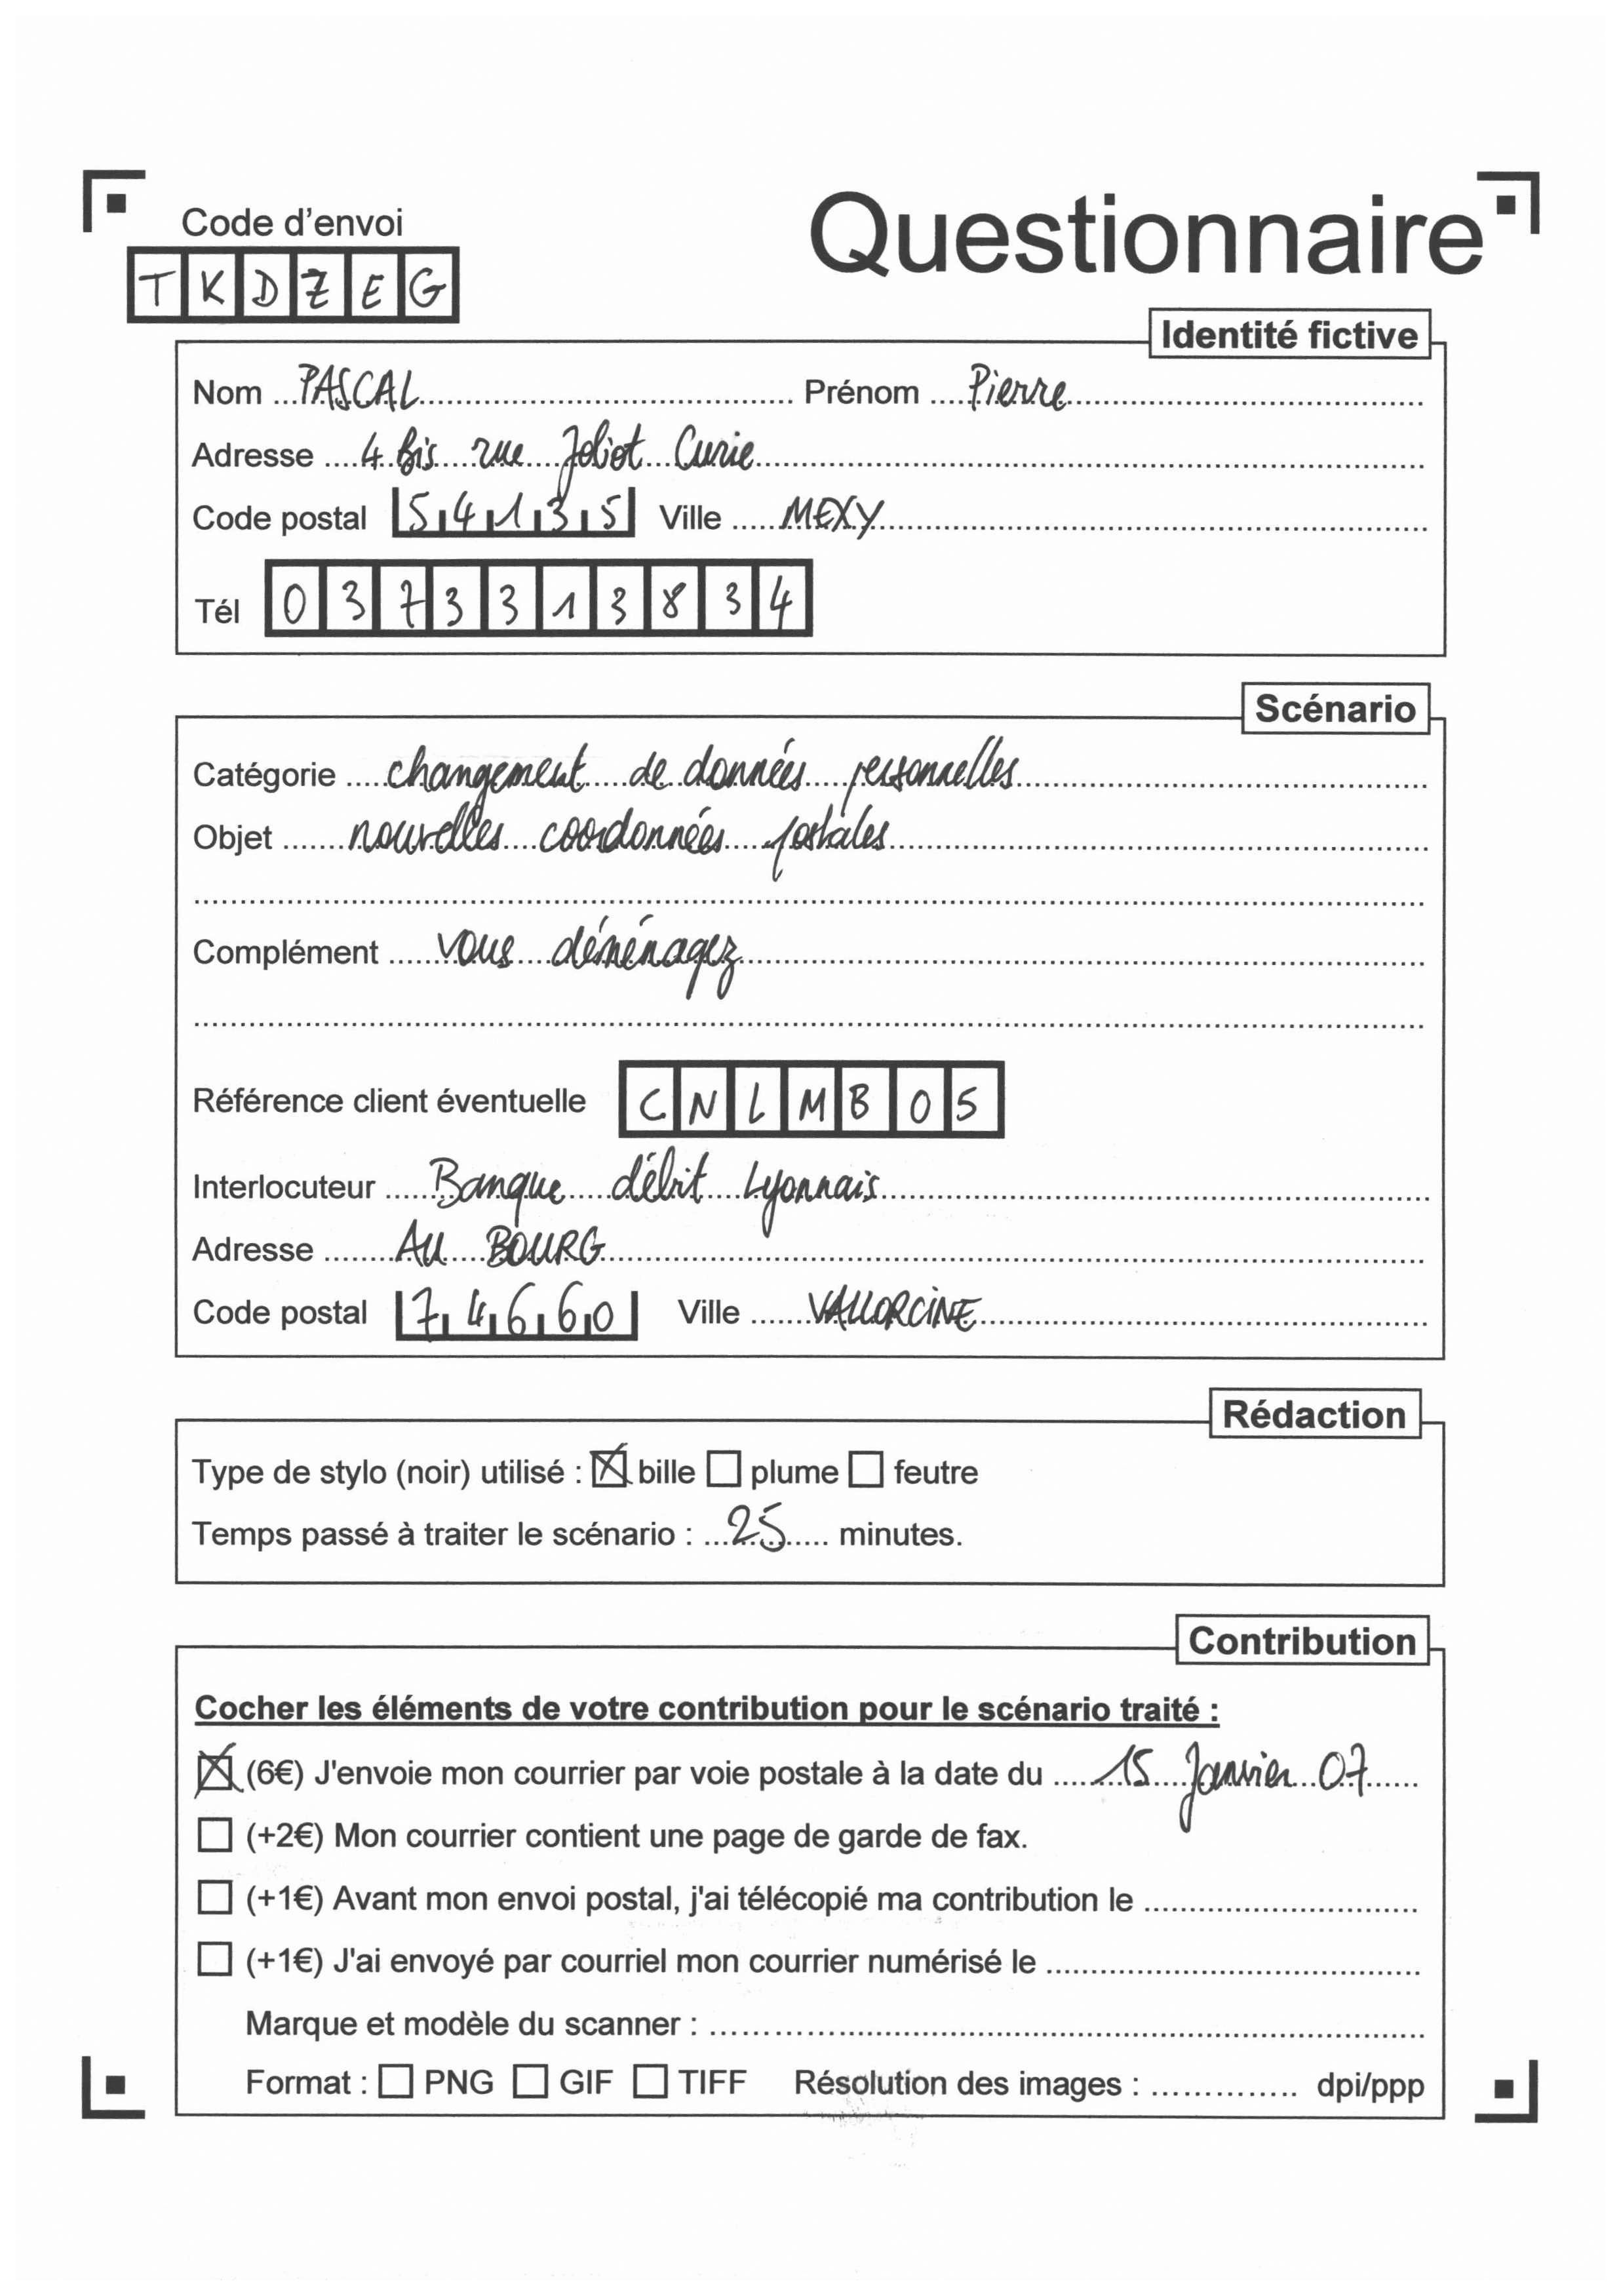 Code d'envoi
Questionnaire
TKDZEG
Identité fictive
Nom PASCAL Prénom Pierre
Adresse 4 bis rue Joliot Curie
Code postal 54135 Ville MEXY
Tél 0373313834
Scénario
Catégorie changement de données personnelles
Objet nouvelles coordonnées postales
Complément vous déménagez
Référence client éventuelle CNLMB05
Interlocuteur Banque débit Lyonnais
Adresse AU BOURG
Code postal 74660 Ville VALLORCINE
Rédaction
Type de stylo (noir) utilisé : ☒ bille ☐ plume ☐ feutre
Temps passé à traiter le scénario : 25 minutes.
Contribution
Cocher les éléments de votre contribution pour le scénario traité :
☒ (6€) J'envoie mon courrier par voie postale à la date du 15 Janvier 07
☐ (+2€) Mon courrier contient une page de garde de fax.
☐ (+1€) Avant mon envoi postal, j'ai télécopié ma contribution le
☐ (+1€) J'ai envoyé par courriel mon courrier numérisé le
Marque et modèle du scanner :
Format : ☐ PNG ☐ GIF ☐ TIFF Résolution des images : dpi/ppp